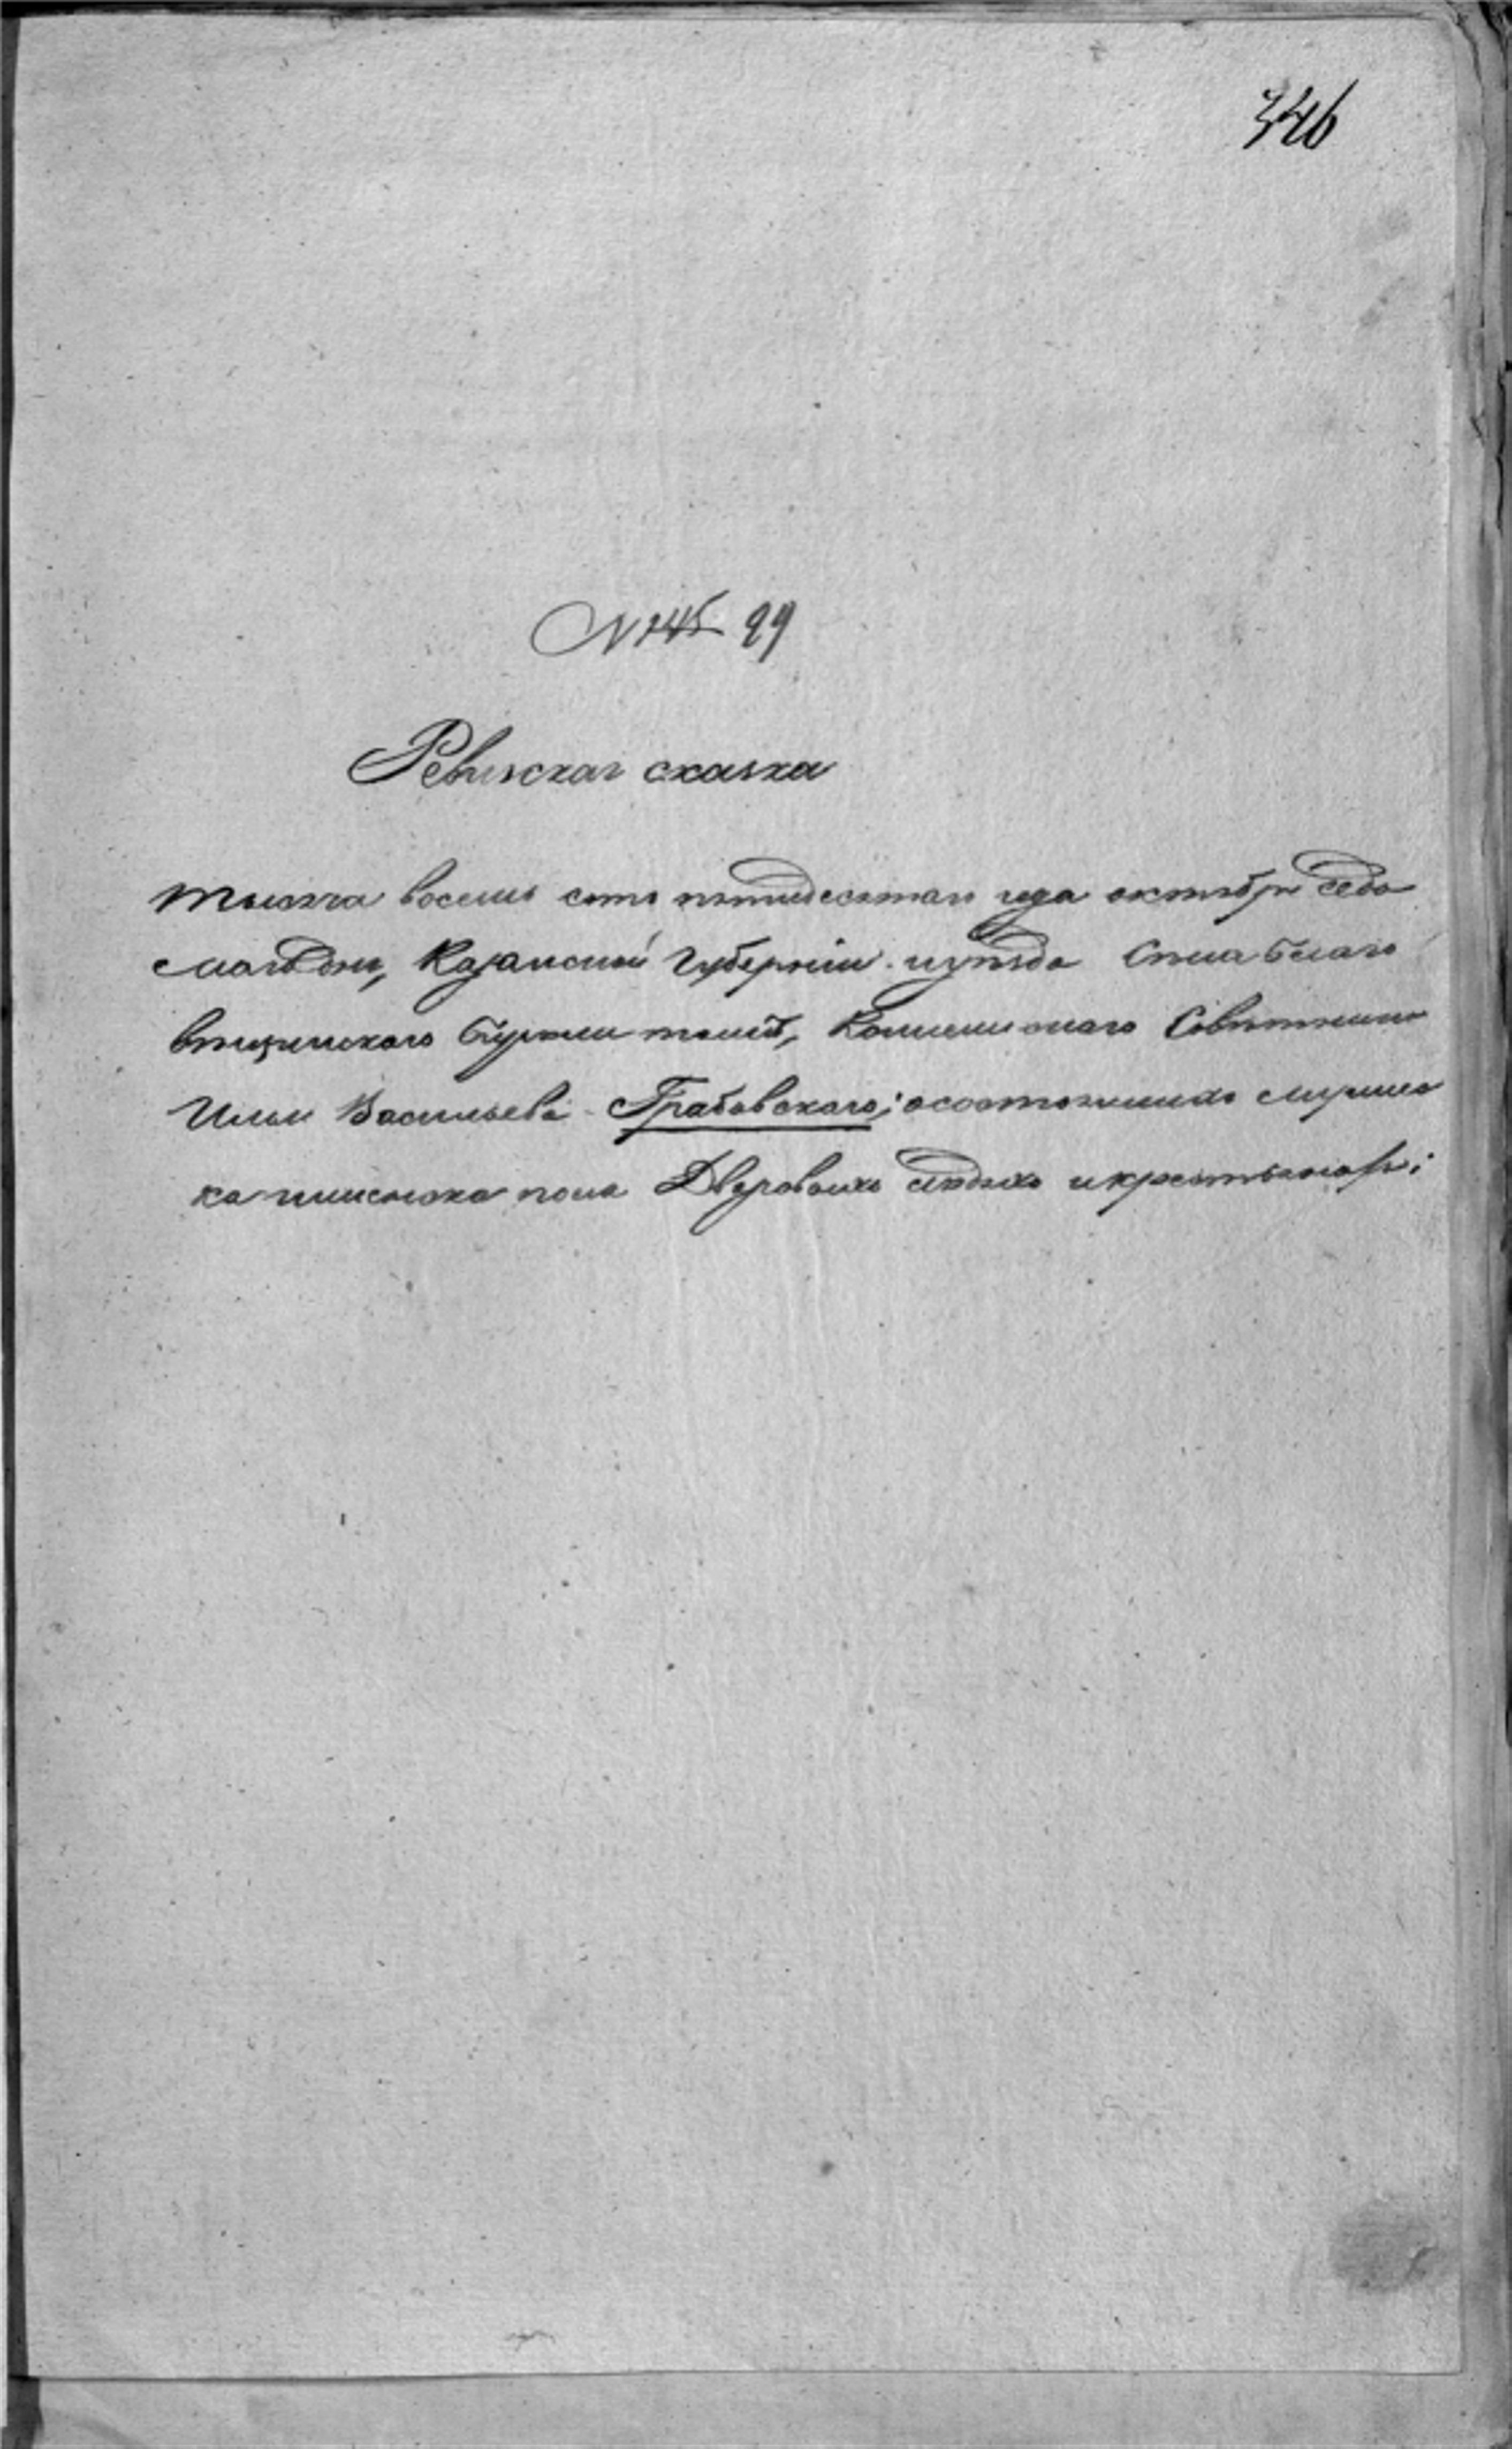 346
N 145 99
Ревизская сказка
Тысяча восемь сотъ пятидесятаго года октября седь
маго дня, Казанской Губерніи уѣзда села
Коллежскаго Совѣтника
Ильи Васильева Грабовскаго; о состоящихъ мужеска
ка и женска пола Дворовыхъ людяхъ и крестьянахъ;